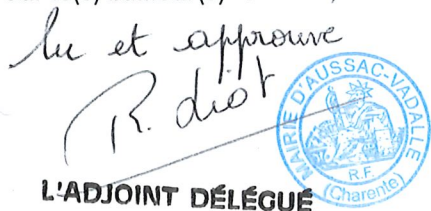 lu et approuve
R. diot
MAIRIE D'AUSSAC-VADALLE
R.F.
(Charente)
L'ADJOINT DÉLÉGUÉ